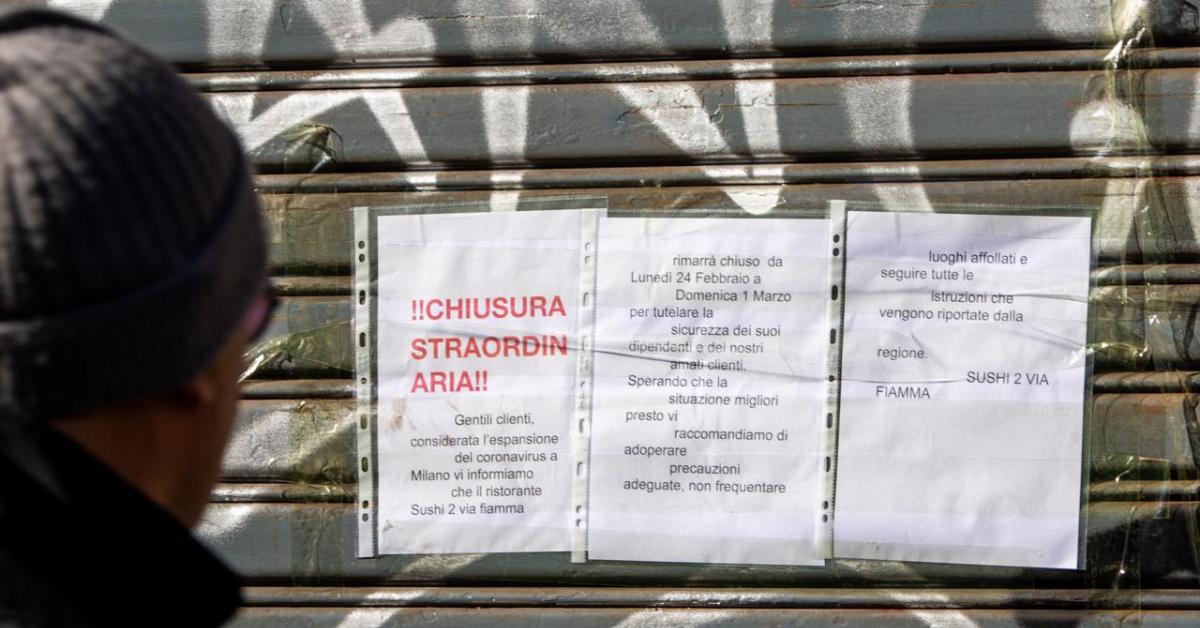 !!CHIUSURA
STRAORDIN
ARIA!!
Gentili clienti,
considerata l'espansione
del coronavirus a
Milano vi informiamo
che il ristorante
Sushi 2 via fiamma
rimarrà chiuso da
Lunedì 24 Febbraio a
Domenica 1 Marzo
per tutelare la
sicurezza dei suoi
dipendenti e dei nostri
amati clienti.
Sperando che la
situazione migliori
presto vi
raccomandiamo di
adoperare
precauzioni
adeguate, non frequentare
luoghi affollati e
seguire tutte le
istruzioni che
vengono riportate dalla
regione.
SUSHI 2 VIA
FIAMMA